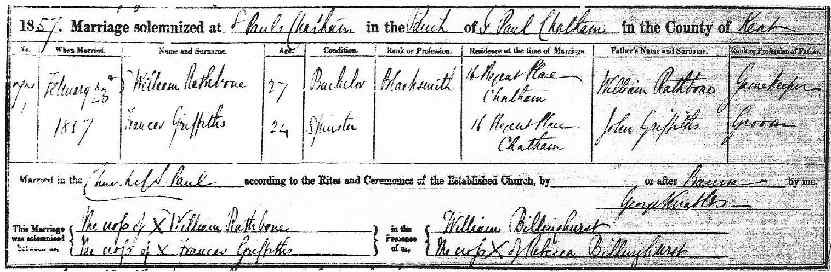 1857. Marriage solemnized at St Pauls Chatham in the Parish of St Paul Chatham in the County of Kent
No. When Married. Name and Surname. Age. Condition. Rank or Profession. Residence at the time of Marriage Father's Name and Surname. Rank or Profession of Father.
February 23rd William Rathbone 27 Bachelor Blacksmith 16 Regent Place Chatham William Rathbone Gamekeeper
1857 Frances Griffiths 24 Spinster 16 Regent Place Chatham John Griffiths Groom
Married in the Church of St Paul according to the Rites and Ceremonies of the Established Church, by or after Banns by me,
George
This Marriage was solemnized between us, The cross of X William Rathbone in the Presence of us, William Billinghurst
The cross of X Frances Griffiths The cross X of Rebecca Billinghurst